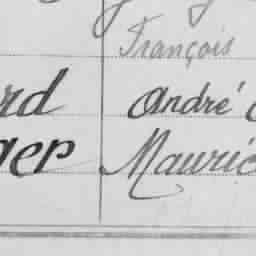 François
rd André
ger Mauric